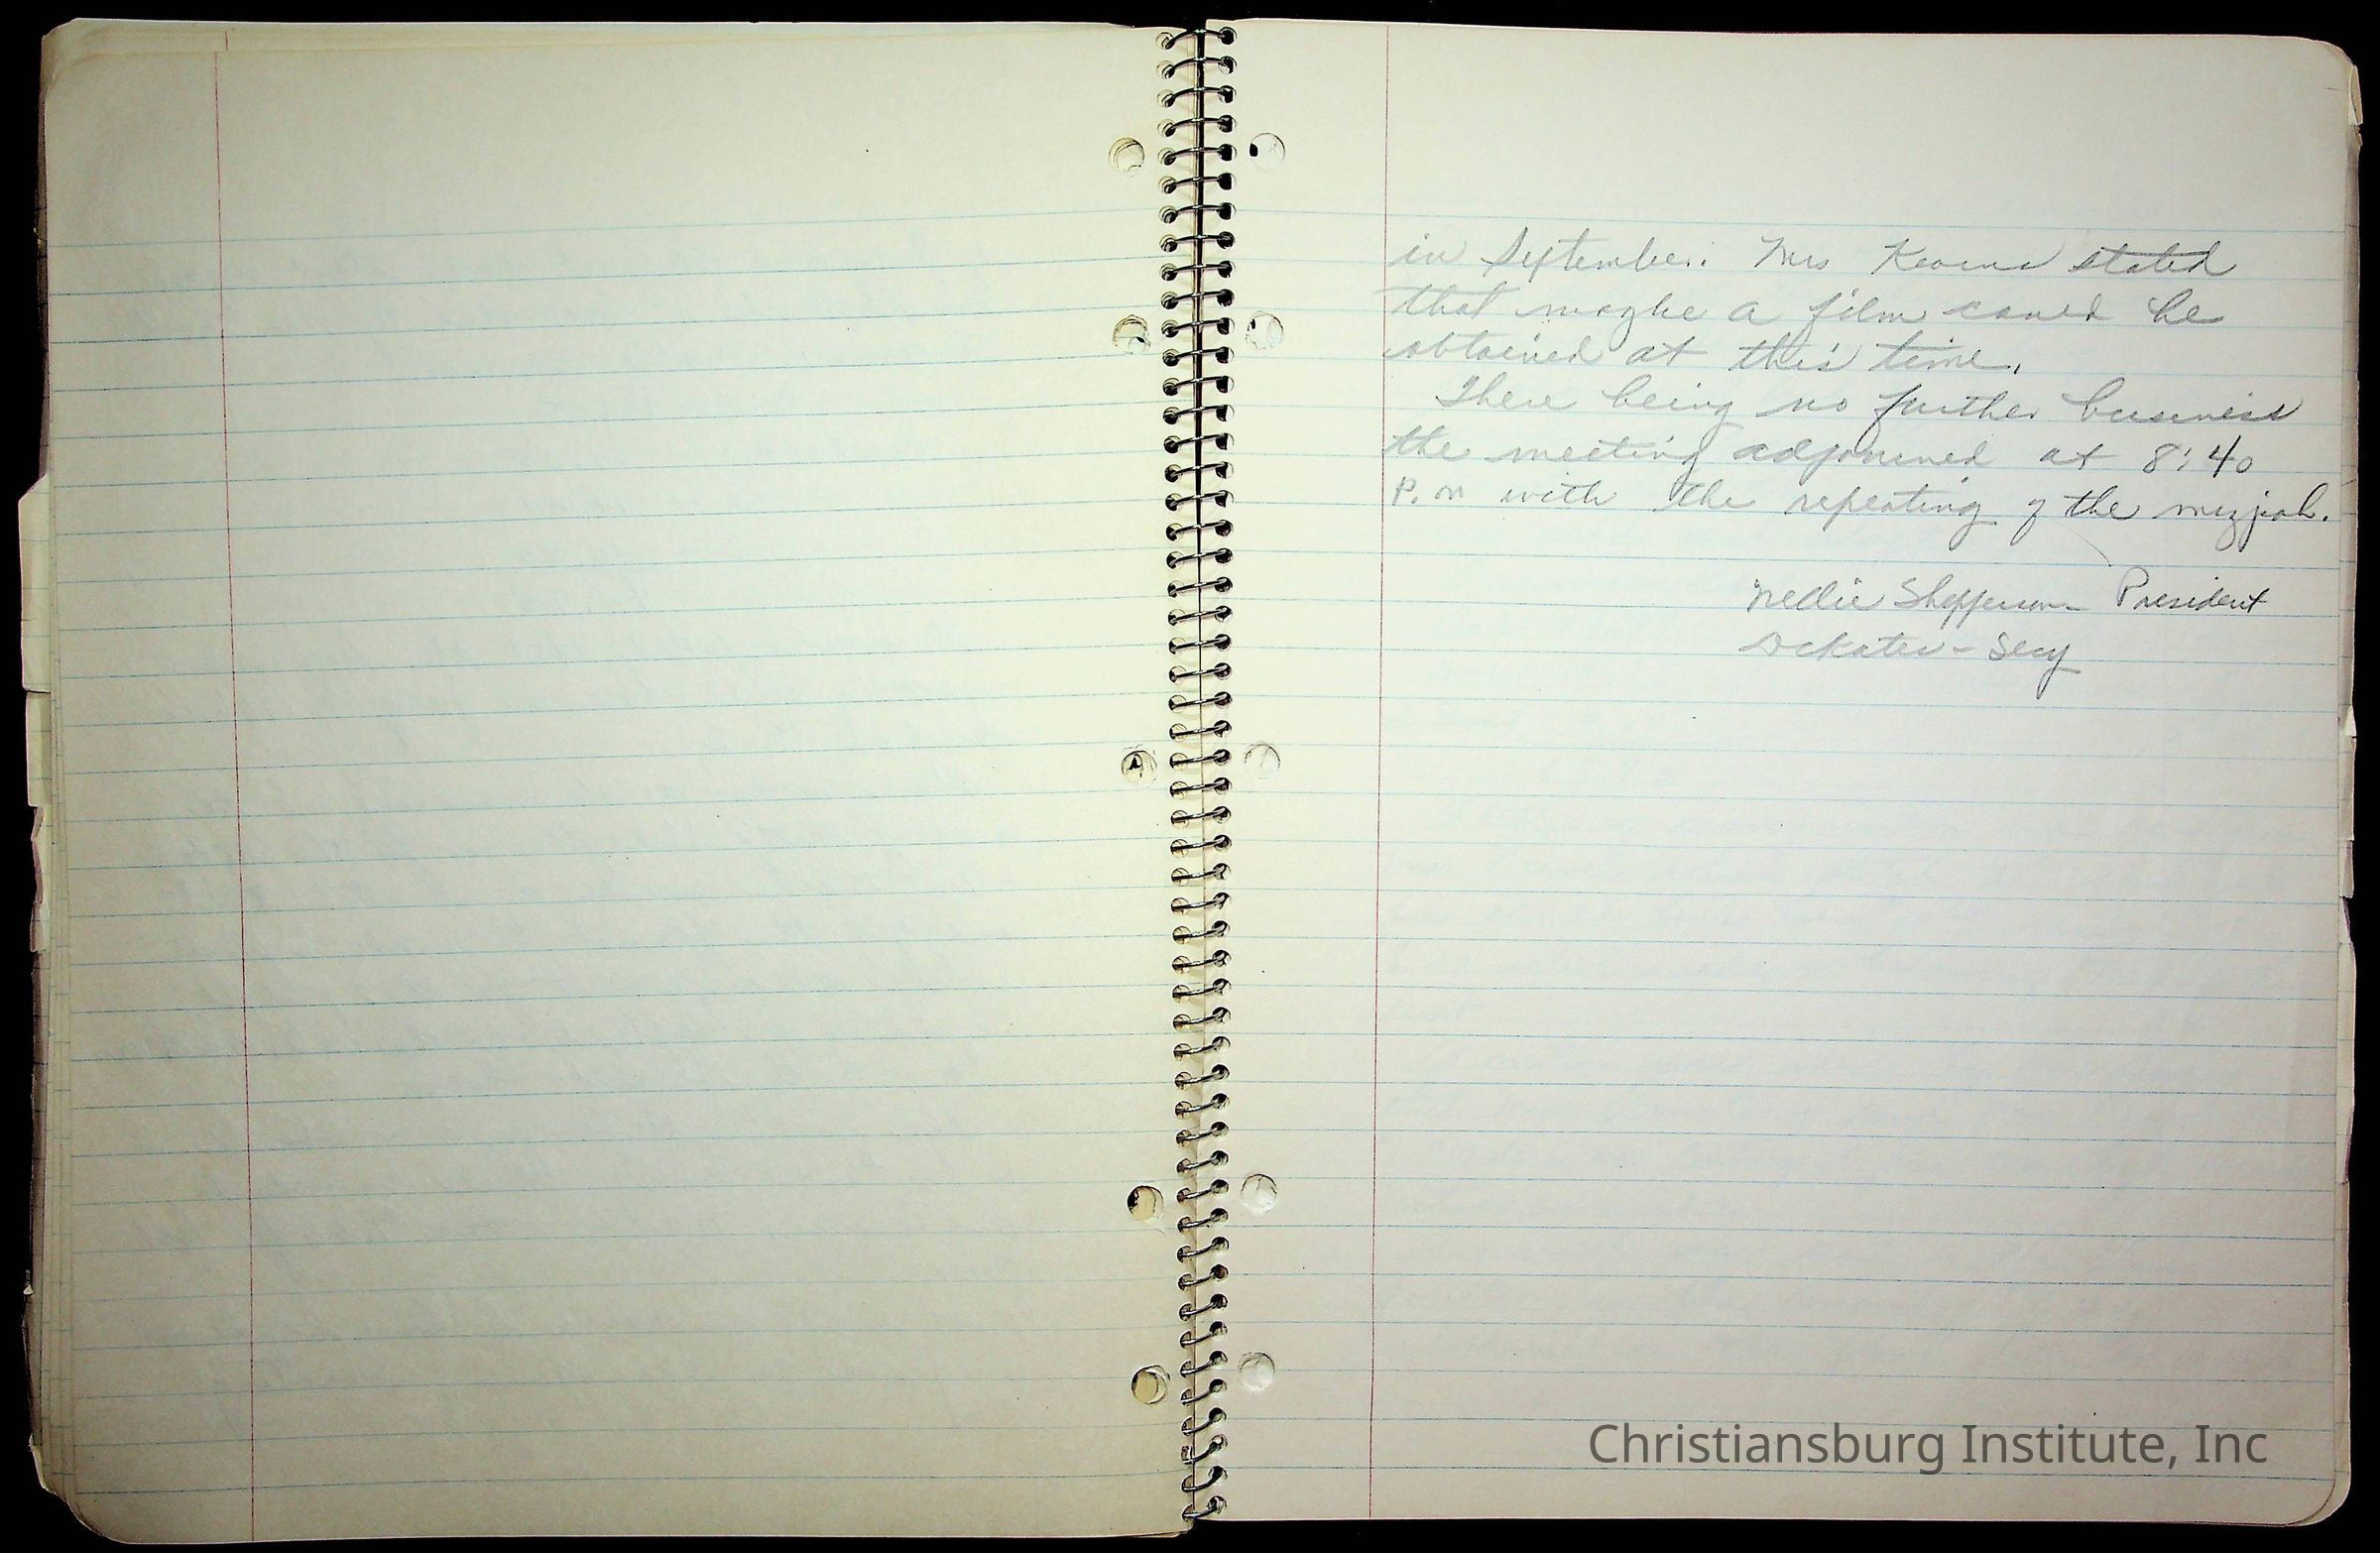 in September. Mrs stated
that maybe a film could be
obtained at this time.
There being no further business
the meeting adjourned at 8:40
P.M with the repeating of the mizpah.
President
Secy
Christiansburg Institute, Inc